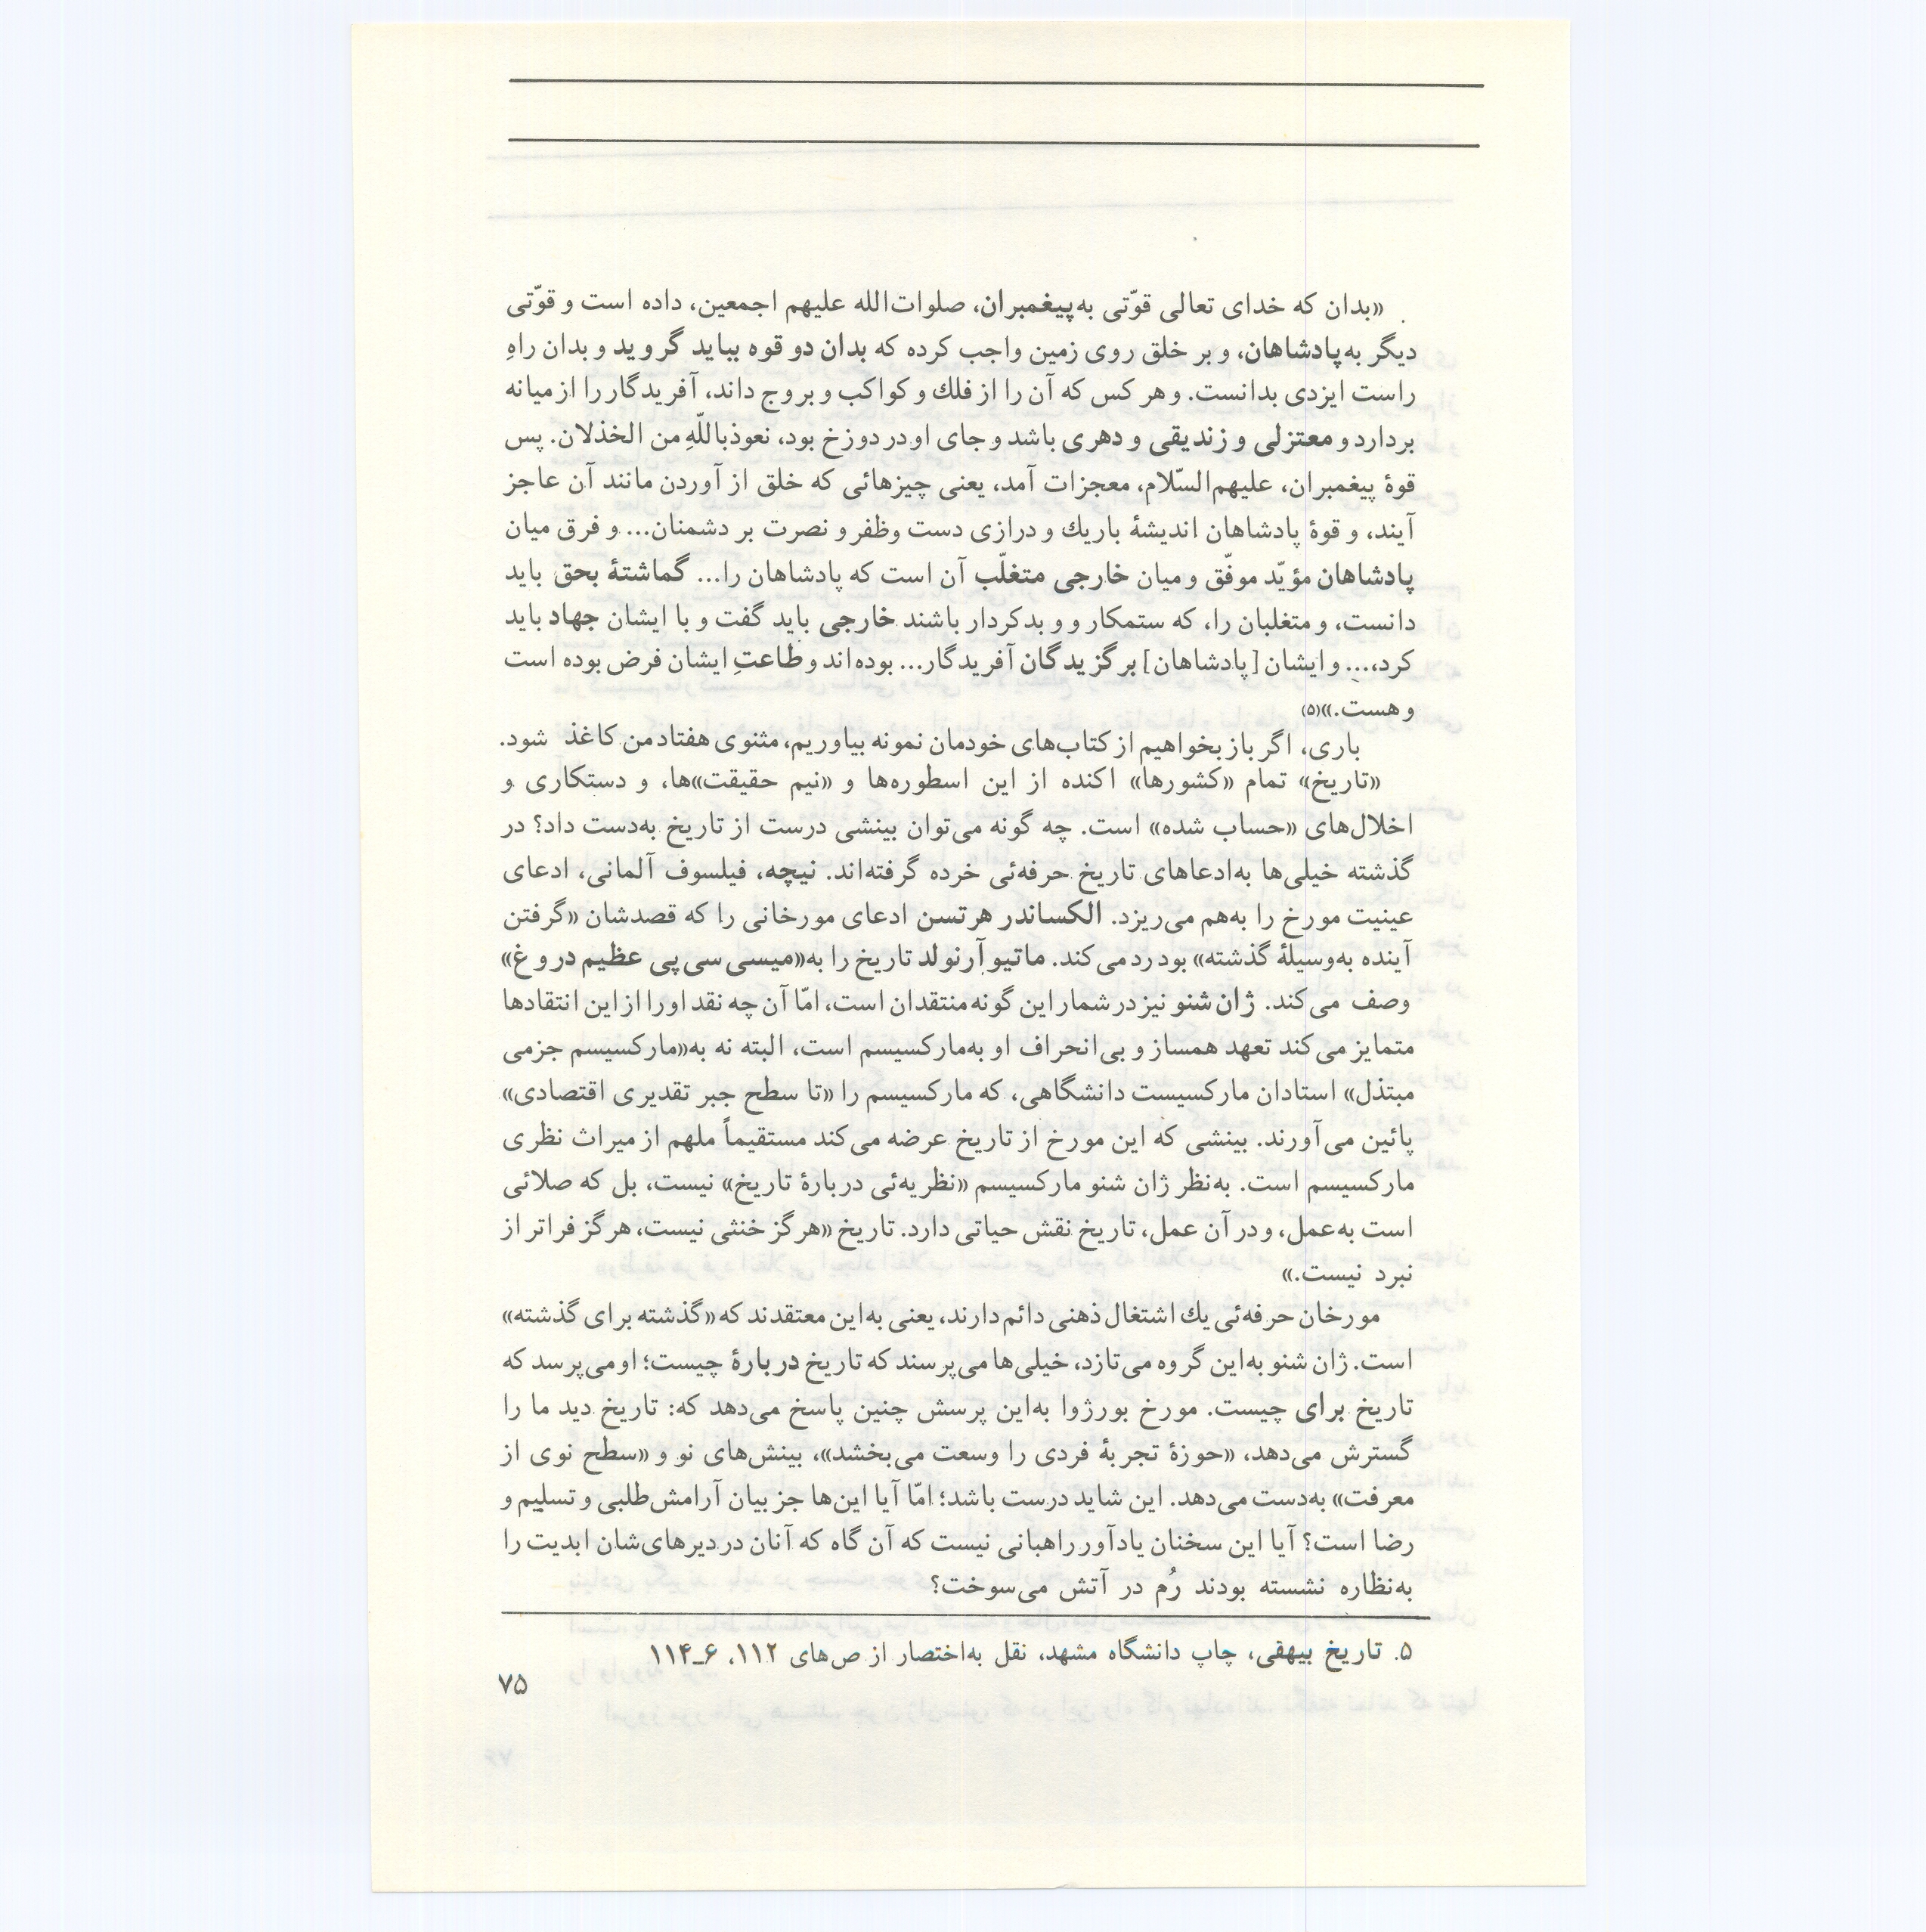 «بدان که خدای تعالی قوّتی به‌پیغمبران، صلوات‌الله علیهم اجمعین، داده است و قوّتی
دیگر به‌پادشاهان، و بر خلق روی زمین واجب کرده که بدان دو قوه بباید گروید و بدان راهِ
راست ایزدی بدانست. و هر کس که آن را از فلك و کواکب و بروج داند، آفریدگار را از میانه
بردارد و معتزلی و زندیقی و دهری باشد و جای او در دوزخ بود، نعوذباللّهِ من الخذلان. پس
قوهٔ پیغمبران، علیهم‌السّلام، معجزات آمد، یعنی چیزهائی که خلق از آوردن مانند آن عاجز
آیند، و قوهٔ پادشاهان اندیشهٔ باریك و درازی دست وظفر و نصرت بر دشمنان... و فرق میان
پادشاهان مؤیّد موفّق و میان خارجی متغلّب آن است که پادشاهان را... گماشتهٔ بحق باید
دانست، و متغلبان را، که ستمکار و و بدکردار باشند خارجی باید گفت و با ایشان جهاد باید
کرد،... و ایشان [پادشاهان] برگزیدگان آفریدگار... بوده‌اند و طاعتِ ایشان فرض بوده است
و هست.»(۵)
باری، اگر باز بخواهیم از کتاب‌های خودمان نمونه بیاوریم، مثنوی هفتاد من کاغذ شود.
«تاریخ» تمام «کشورها» اکنده از این اسطوره‌ها و «نیم حقیقت»ها، و دستکاری و
اخلال‌های «حساب شده» است. چه گونه می‌توان بینشی درست از تاریخ به‌دست داد؟ در
گذشته خیلی‌ها به‌ادعاهای تاریخ حرفه‌ئی خرده گرفته‌اند. نیچه، فیلسوف آلمانی، ادعای
عینیت مورخ را به‌هم می‌ریزد. الکساندر هرتسن ادعای مورخانی را که قصدشان «گرفتن
آینده به‌وسیلهٔ گذشته» بود رد می‌کند. ماتیو آرنولد تاریخ را به‌«میسی سی پی عظیم دروغ»
وصف می‌کند. ژان شنو نیز در شمار این گونه منتقدان است، امّا آن چه نقد او را از این انتقادها
متمایز می‌کند تعهد همساز و بی‌انحراف او به‌مارکسیسم است، البته نه به‌«مارکسیسم جزمی
مبتذل» استادان مارکسیست دانشگاهی، که مارکسیسم را «تا سطح جبر تقدیری اقتصادی»
پائین می‌آورند. بینشی که این مورخ از تاریخ عرضه می‌کند مستقیماً ملهم از میراث نظری
مارکسیسم است. به‌نظر ژان شنو مارکسیسم «نظریه‌ئی دربارهٔ تاریخ» نیست، بل که صلائی
است به‌عمل، و در آن عمل، تاریخ نقش حیاتی دارد. تاریخ «هرگز خنثی نیست، هرگز فراتر از
نبرد نیست.»
مورخان حرفه‌ئی یك اشتغال ذهنی دائم دارند، یعنی به‌این معتقدند که «گذشته برای گذشته»
است. ژان شنو به‌این گروه می‌تازد، خیلی‌ها می‌پرسند که تاریخ دربارهٔ چیست؛ او می‌پرسد که
تاریخ برای چیست. مورخ بورژوا به‌این پرسش چنین پاسخ می‌دهد که: تاریخ دید ما را
گسترش می‌دهد، «حوزهٔ تجربهٔ فردی را وسعت می‌بخشد»، بینش‌های نو و «سطح نوی از
معرفت» به‌دست می‌دهد. این شاید درست باشد؛ امّا آیا این‌ها جز بیان آرامش‌طلبی و تسلیم و
رضا است؟ آیا این سخنان یادآور راهبانی نیست که آن گاه که آنان در دیرهای‌شان ابدیت را
به‌نظاره نشسته بودند رُم در آتش می‌سوخت؟
۵. تاریخ بیهقی، چاپ دانشگاه مشهد، نقل به‌اختصار از ص‌های ۱۱۲، ۶ـ۱۱۴
۷۵